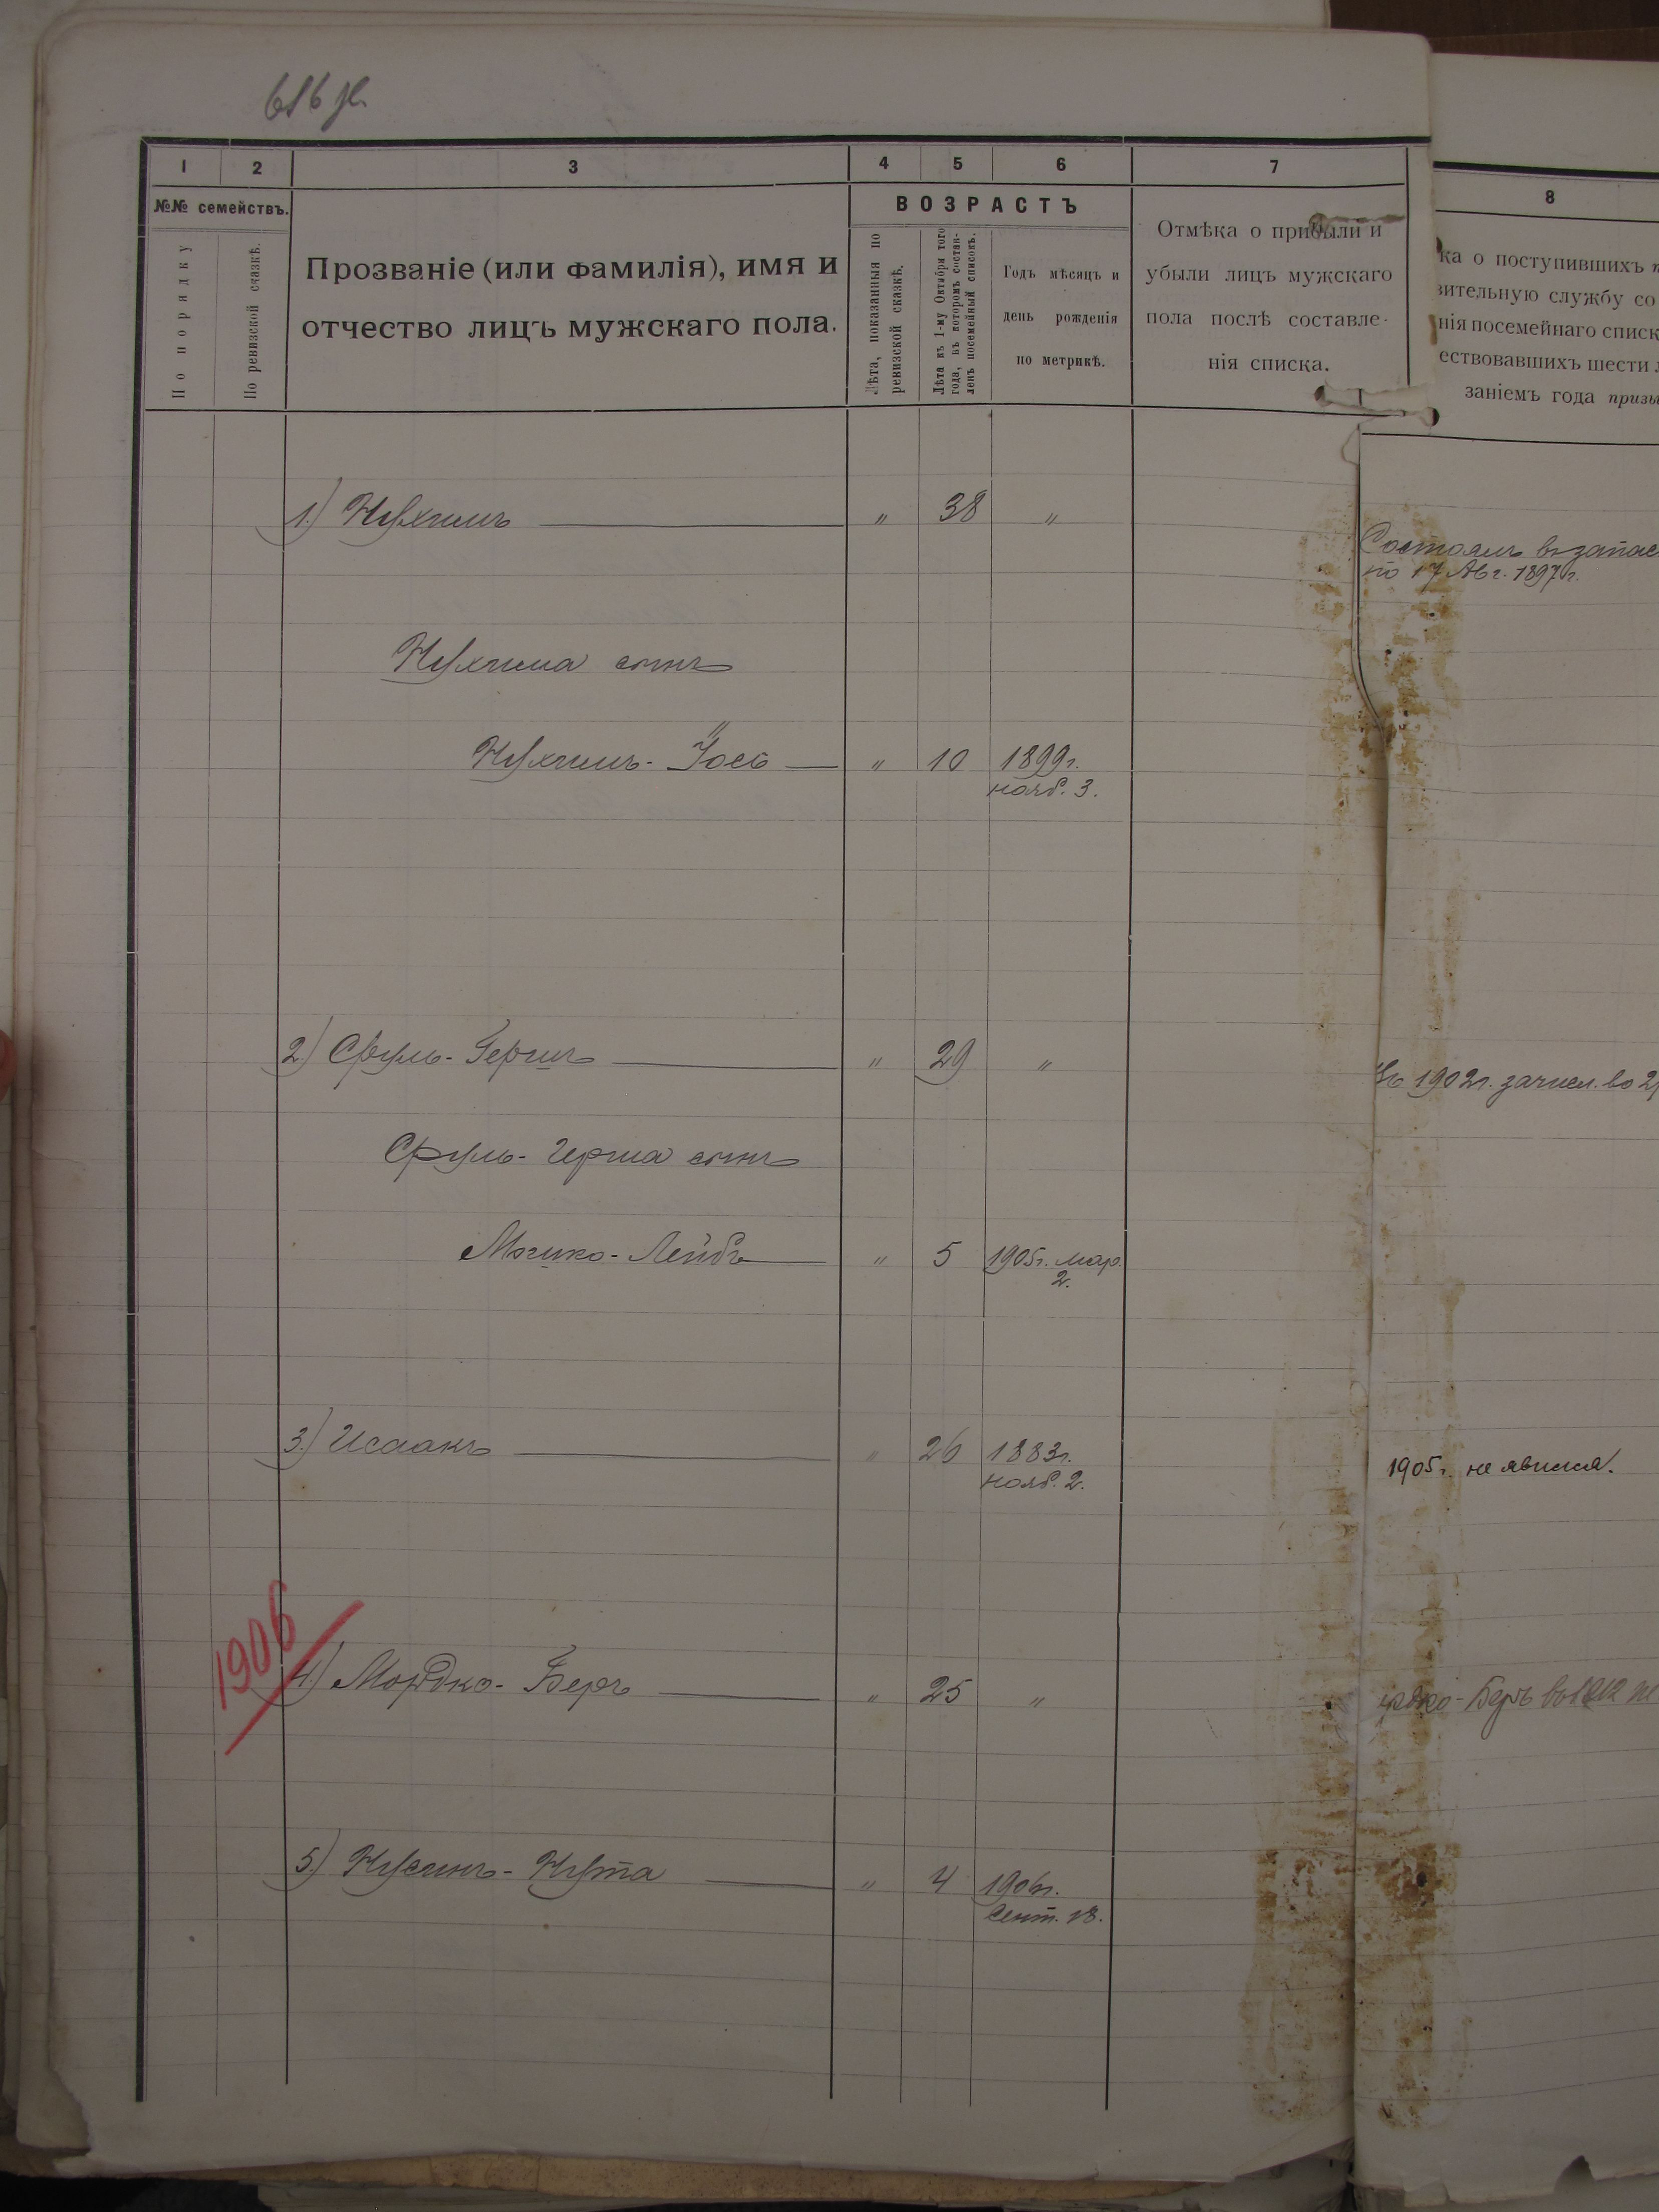 1 2 3 4 5 6 7
8
№№ семействъ.
По порядку
По ревизской сказкѣ.
Прозваніе (или фамилія), имя и
отчество лицъ мужскаго пола.
ВОЗРАСТЪ
Лѣта, показанныя по
ревизской сказкѣ.
Лѣта къ 1-му Октября того
года, въ которомъ состав-
ленъ посемейный списокъ.
Годъ мѣсяцъ и
день рожденія
по метрикѣ.
Отмѣка о прибыли и
убыли лицъ мужскаго
пола послѣ составле-
нія списка.
ка о поступившихъ
вительную службу со
нія посемейнаго списк
ествовавшихъ шести
заніемъ года призы
1.) Нухимъ " 38 "
Состоялъ въ запас
по 17 Авг. 1897г.
Нухима сынъ
Нухимъ-Іось " 10 1899г.
нояб. 3.
2.) Сруль-Гершъ " 29 "
Въ 1902г. зачисл. во 2
Сруль-Герша сынъ
Мошко-Лейбъ " 5 1905г. мар.
2.
3.) Исаакъ " 26 1883г.
нояб. 2.
1905г. не явился.
1906
4.) Мордко-Беръ " 25 "
рдко-Беръ
5.) Нусинъ-Нута " 4 1906г.
Сент. 18.